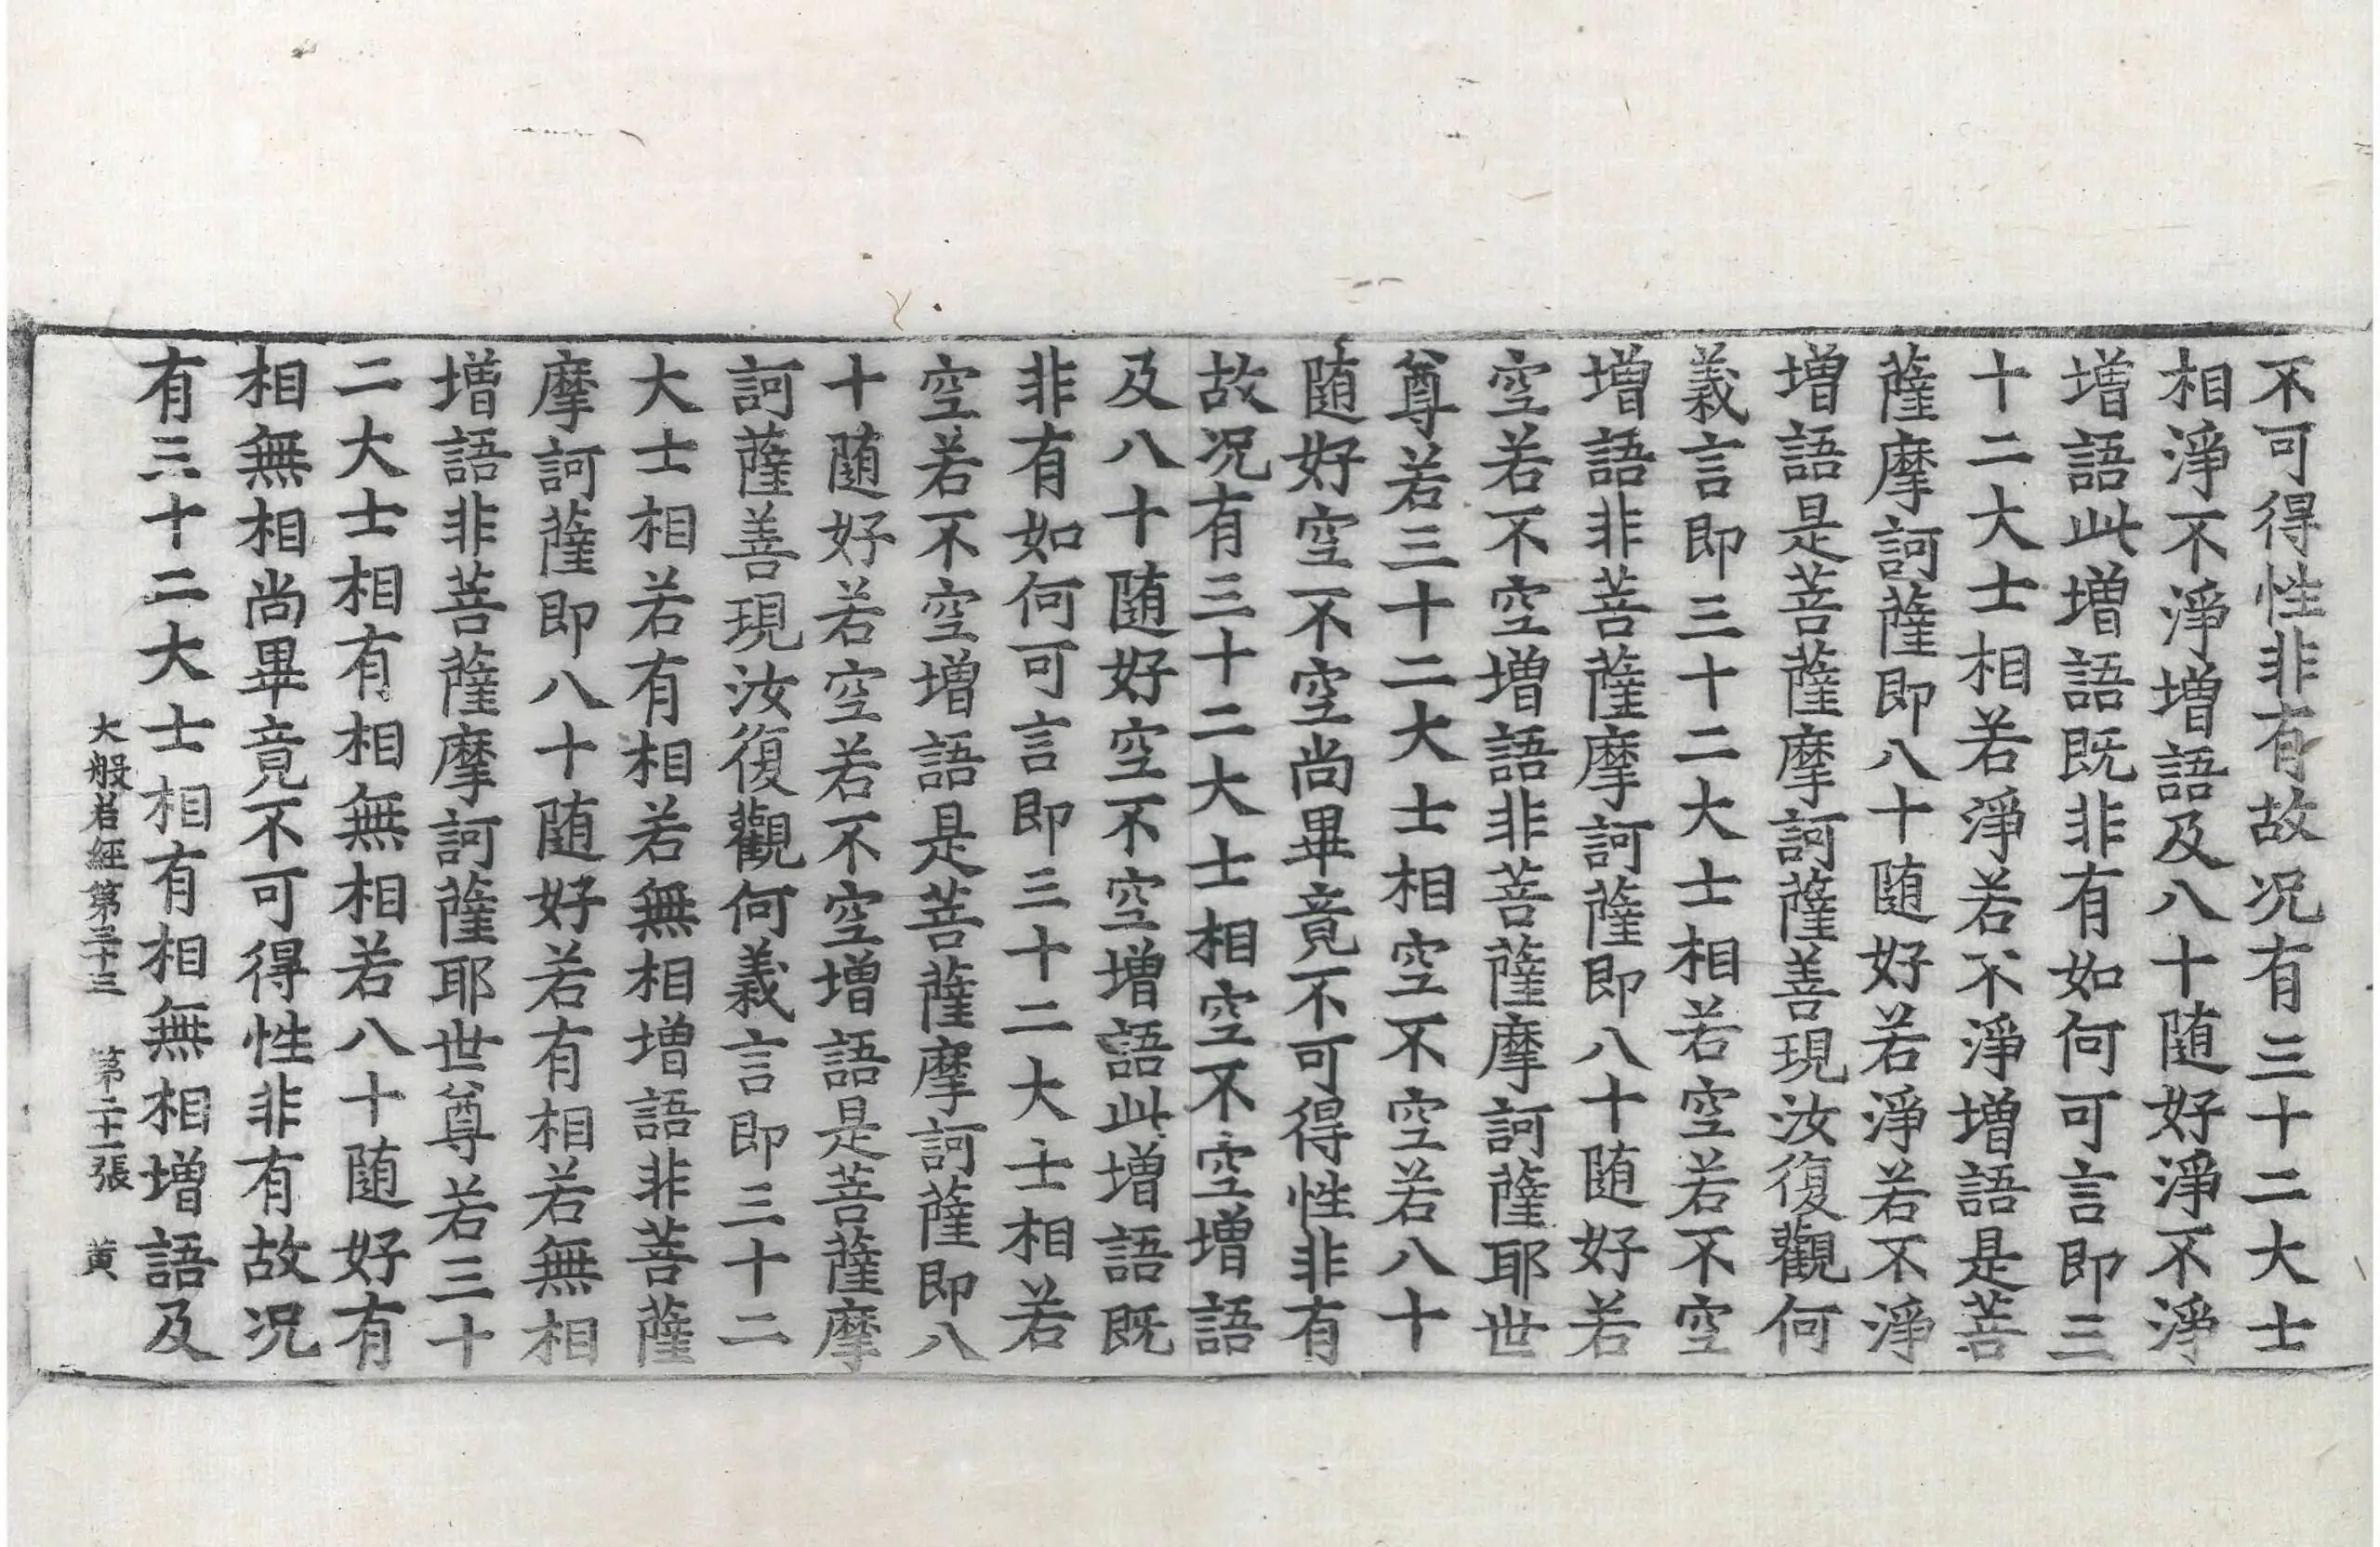 不可得性非有故况有三十二大士
相淨不淨增語及八十随好淨不淨
增語此增語既非有如何可言即三
十二大士相若淨若不淨增語是菩
薩摩訶薩即八十随好若淨若不淨
增語是菩薩摩訶薩善現汝復觀何
義言即三十二大士相若空若不空
增語非菩薩摩訶薩即八十随好若
空若不空增語非菩薩摩訶薩耶世
尊若三十二大士相空不空若八十
随好空不空尚畢竟不可得性非有
故况有三十二大士相空不空增語
及八十随好空不空增語此增語既
非有如何可言即三十二大士相若
空若不空增語是菩薩摩訶薩即八
十随好若空若不空增語是菩薩摩
訶薩善現汝復觀何義言即三十二
大士相若有相若無相增語非菩薩
摩訶薩即八十随好若有相若無相
增語非菩薩摩訶薩耶世尊若三十
二大士相有相無相若八十随好有
相無相尚畢竟不可得性非有故况
有三十二大士相有相無相增語及
大般若經第三十三 第二十一張 黄